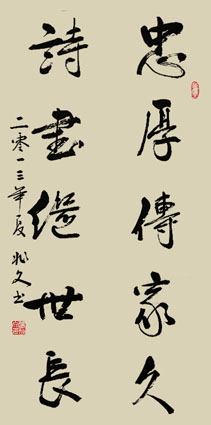 忠厚傳家久
詩書繼世長
二零一三年夏兆文书